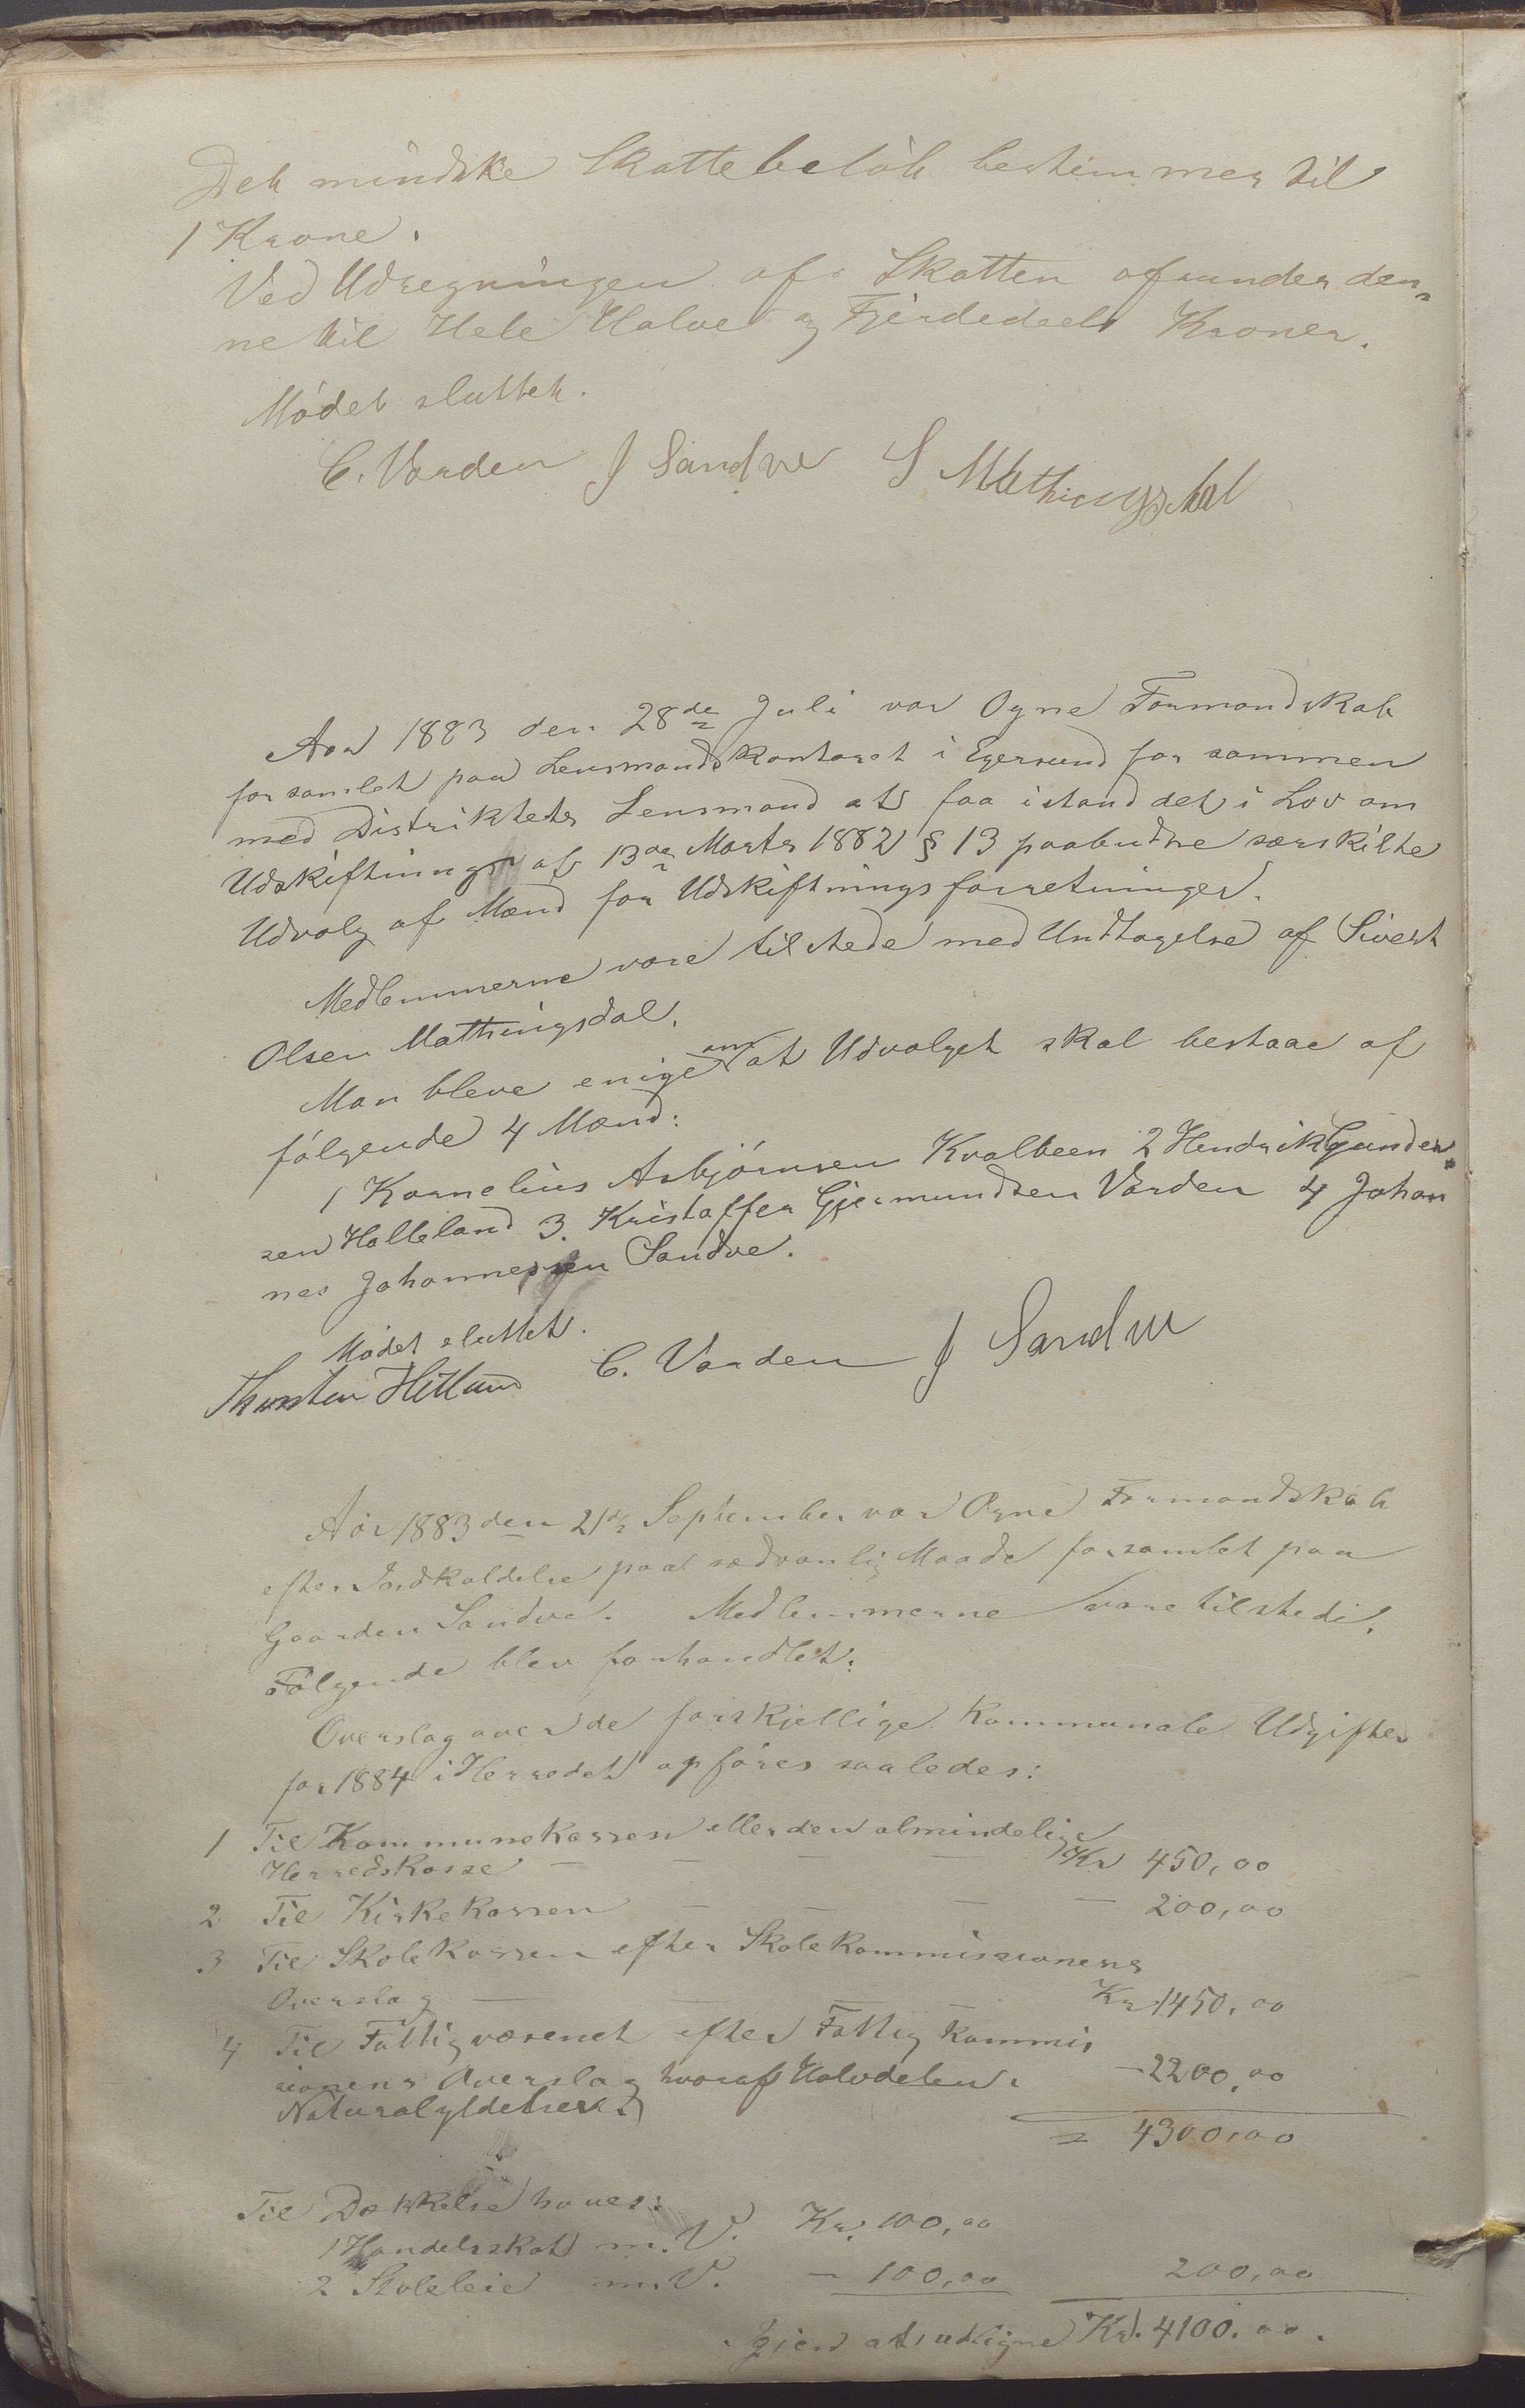 Det mindske Skattebeløb bestemmes til
1 Krone.
Ved Udregningen af Skatten afrundes den-
ne til Hele Halve og Fjerdedeels Kroner.
Mödet sluttet.
C. Varden J Sandve S Mathingsdal
Aar 1883 den 28de Juli var Ogne Formandskab
forsamlet paa Lensmandskontoret i Egersund for sammen
med Distriktets Lensmand at faa istand det i Lov om
Udskiftning af 13de Marts 1882 § 13 paabudne særskilte
Udvalg af Mænd for Udskiftningsforretninger.
Medlemmerne vare tilstede med Undtagelse af Sivert
Olsen Mathingsdal.
Man bleve enige om at Udvalget skal bestaae af
følgende 4 Mænd:
1 Kornelius Asbjörnsen Kvalbeen 2 Hendrik Gunder-
sen Halleland 3. Kristaffer Gjermundsen Varden 4 Johan
nes Johannessen Sandve.
Mödet sluttet.
Thorsten Hetland C. Varden J Sandve
Aar 1883 den 21de September var Ogne Formandskab
efter Indkaldelse paa sædvanlig Maade forsamlet paa
Gaarden Sandve. Medlemmerne vare tilstede.
Følgende blev forhandlet:
Overslag over de forskjellige Kommunale Udgifter
for 1884 i Herredet opföres saaledes:
1 Til Kommunekassen eller den almindelige
Herredskasse — — — — Kr 450,00
2 Til Kirkekassen — — — — 200,00
3 Til Skolekassen efter Skolekommissionens
Overslag — — — — Kr 1450,00
4 Til Fattigvæsenet efter Fattigkommis
sionens Overslag hvoraf Halvdelen i — 2200,00
Naturalydelser
= 4300,00
Til Dækkelse haves:
1 Handelsskat m. V. Kr. 100,00
2 Skoleleie m. V. — 100,00 200,00
Igjen at udligne Kr. 4100.00.